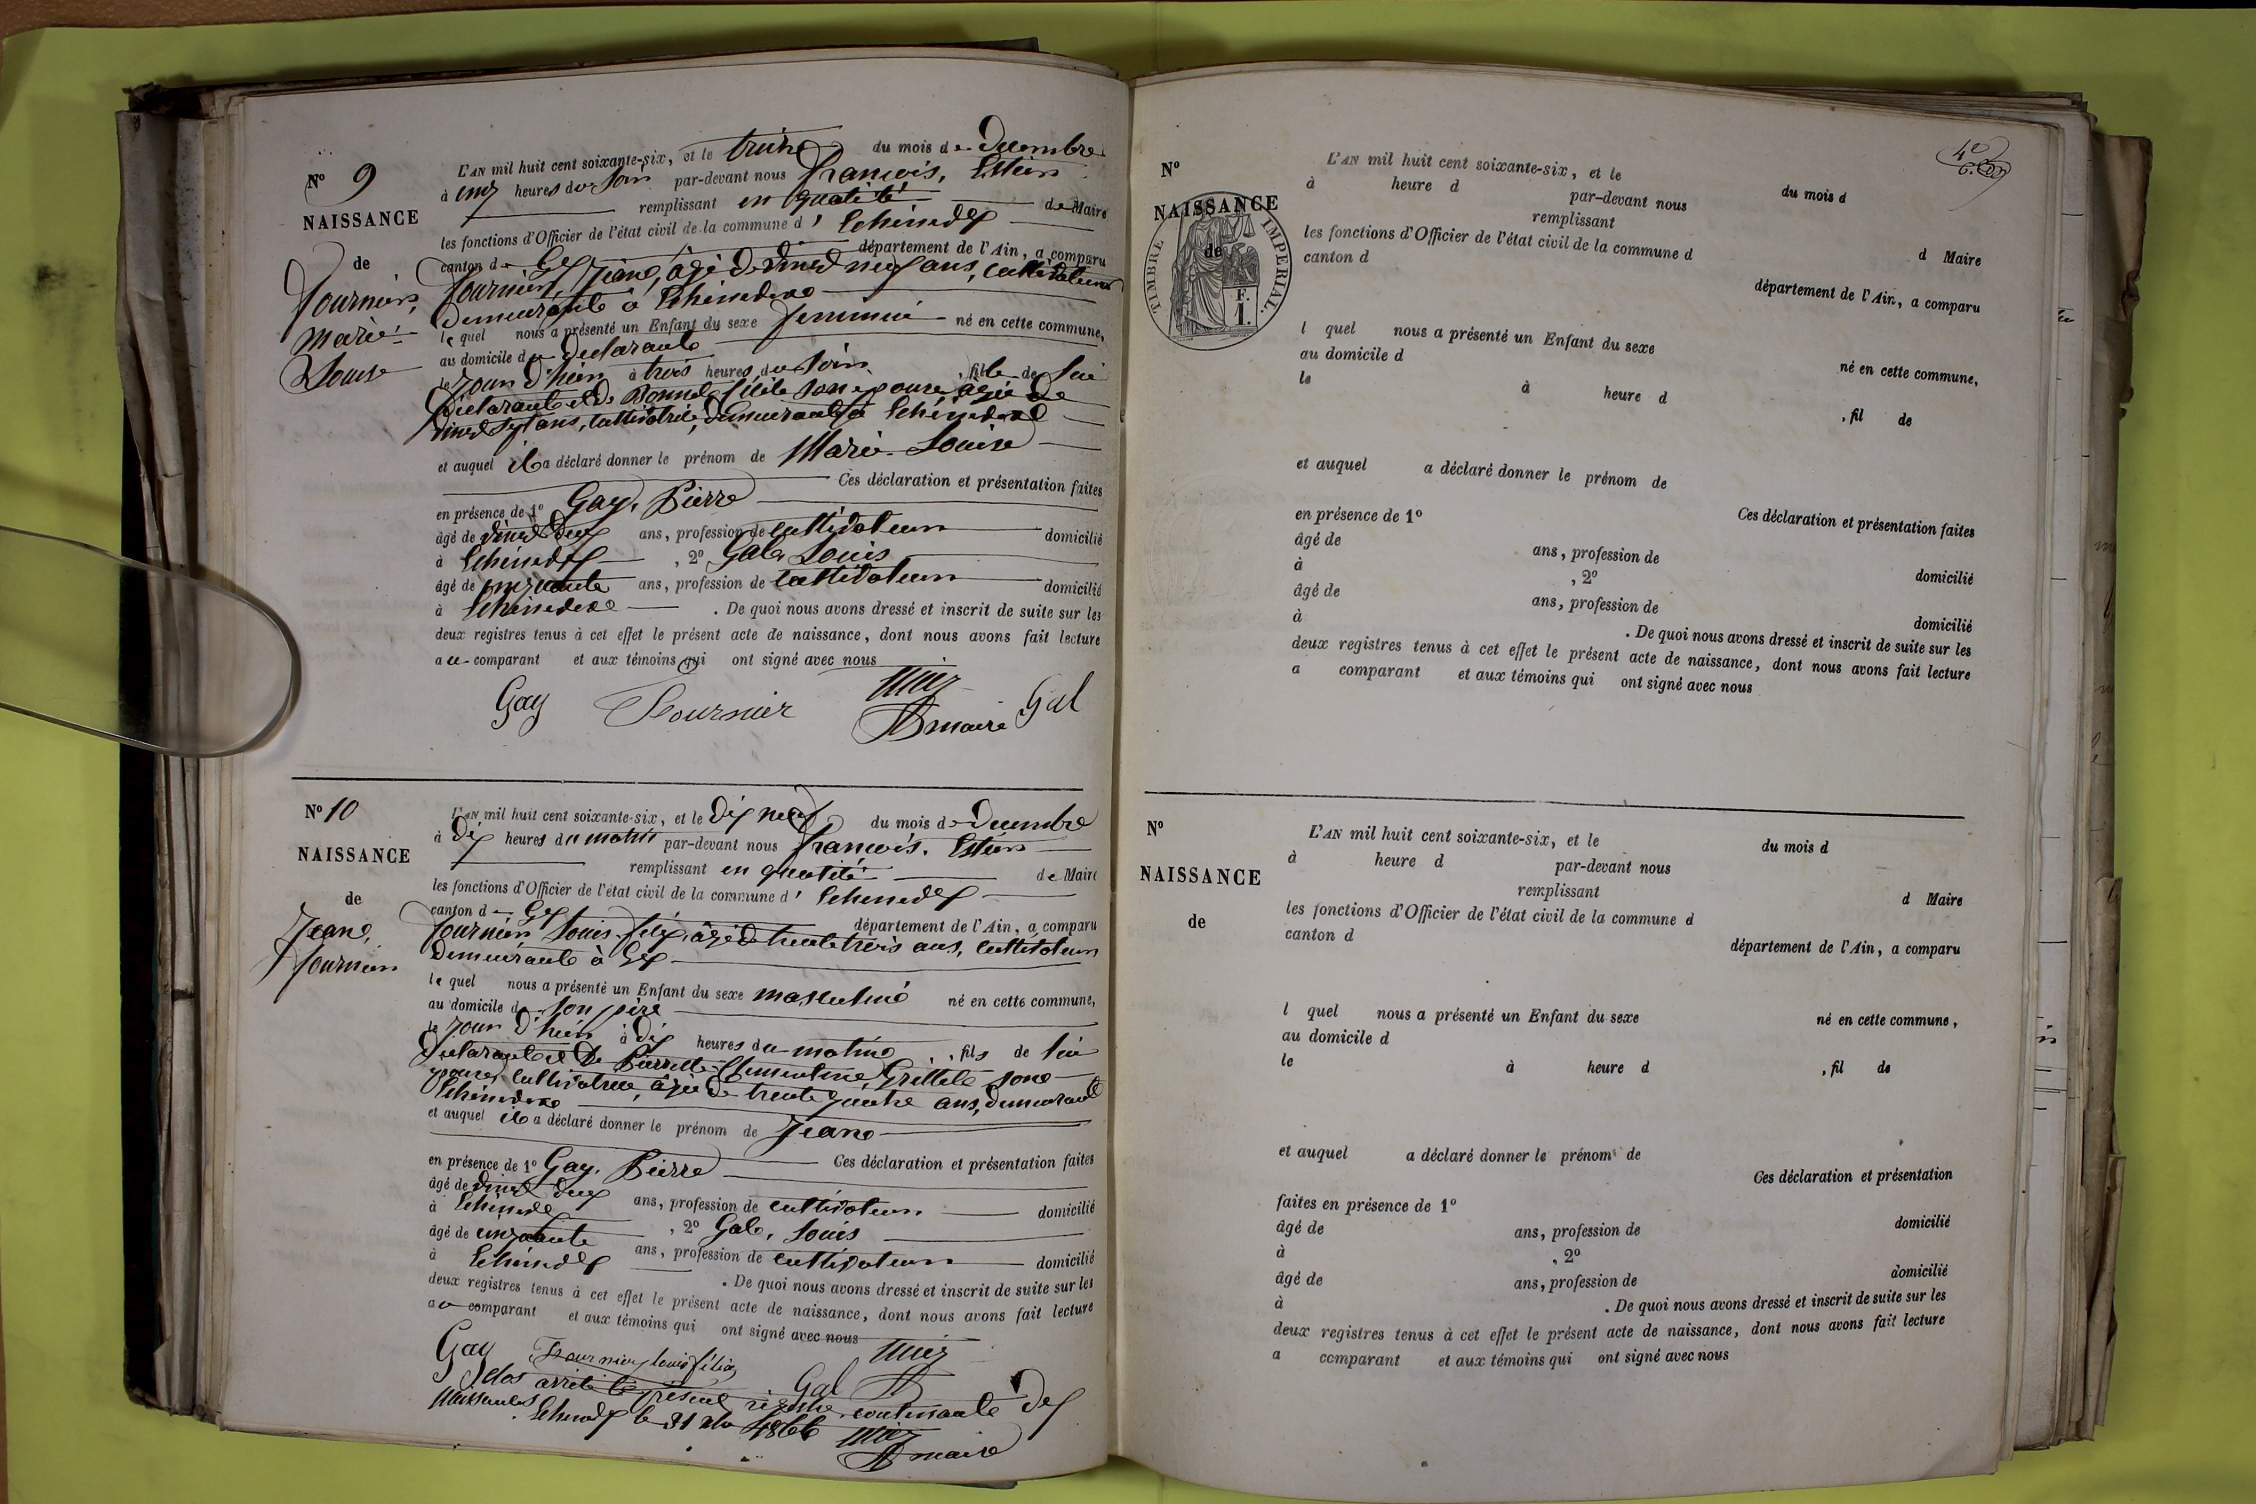 N° 9
NAISSANCE
de
Fournier,
Marie-
Louise
L'AN mil huit cent soixante-six, et le treize du mois de Décembre
à cinq heures du soir par-devant nous François,
remplissant en qualité de Maire
les fonctions d'Officier de l'état civil de la commune d' Echenevex
canton de Gex département de l'Ain, a comparu
Fournier, Jean, âgé de vingt neuf ans, cultivateur
demeurant à Echenevex
le quel nous a présenté un Enfant du sexe féminin né en cette commune,
au domicile du déclarant
le jour d'hier à trois heures du soir, fille de lui
déclarant et de son épouse âgée de
vingt sept ans, cultivatrice, demeurant à Echenevex
et auquel il a déclaré donner le prénom de Marie-Louise
Ces déclaration et présentation faites
en présence de 1° Gay, Pierre
âgé de vingt deux ans, profession de cultivateur domicilié
à Echenevex, 2° Gal, Louis
âgé de cinquante ans, profession de cultivateur domicilié
à Echenevex. De quoi nous avons dressé et inscrit de suite sur les
deux registres tenus à cet effet le présent acte de naissance, dont nous avons fait lecture
au comparant et aux témoins qui ont signé avec nous
Gay Fournier Gal
maire
N° 10
NAISSANCE
de
Jean,
Fournier
L'AN mil huit cent soixante-six, et le dix neuf du mois de Décembre
à dix heures du matin par-devant nous François,
remplissant en qualité de Maire
les fonctions d'Officier de l'état civil de la commune d' Echenevex
canton de Gex département de l'Ain, a comparu
Fournier Louis, félix, âgé de trente trois ans, cultivateur
demeurant à Gex
le quel nous a présenté un Enfant du sexe masculin né en cette commune,
au domicile de son père
le jour d'hier à dix heures du matin, fils de lui
déclarant et de Pierrette Clementine, Grillet son
épouse, cultivatrice, âgée de trente quatre ans, demeurant
Echenevex
et auquel il a déclaré donner le prénom de Jean
Ces déclaration et présentation faites
en présence de 1° Gay, Pierre
âgé de vingt deux ans, profession de cultivateur domicilié
à Echenevex, 2° Gal, Louis
âgé de cinquante ans, profession de cultivateur domicilié
à Echenevex. De quoi nous avons dressé et inscrit de suite sur les
deux registres tenus à cet effet le présent acte de naissance, dont nous avons fait lecture
au comparant et aux témoins qui ont signé avec nous
Gay Fournier louis félix Gal
Clos arrêté le présent régistre contenant dix
Naissances
Echenevex le 31 Xbre 1866
maire
N°
NAISSANCE
de
TIMBRE IMPERIAL.
L'AN mil huit cent soixante-six, et le du mois d
à heure d par-devant nous
remplissant d Maire
les fonctions d'Officier de l'état civil de la commune d
canton d département de l'Ain, a comparu
l quel nous a présenté un Enfant du sexe né en cette commune,
au domicile d
le à heure d , fil de
et auquel a déclaré donner le prénom de
Ces déclaration et présentation faites
en présence de 1°
âgé de ans, profession de domicilié
à , 2°
âgé de ans, profession de domicilié
à . De quoi nous avons dressé et inscrit de suite sur les
deux registres tenus à cet effet le présent acte de naissance, dont nous avons fait lecture
a comparant et aux témoins qui ont signé avec nous
N°
NAISSANCE
de
L'AN mil huit cent soixante-six, et le du mois d
à heure d par-devant nous
remplissant d Maire
les fonctions d'Officier de l'état civil de la commune d
canton d département de l'Ain, a comparu
l quel nous a présenté un Enfant du sexe né en cette commune,
au domicile d
le à heure d , fil de
et auquel a déclaré donner le prénom de
Ces déclaration et présentation
faites en présence de 1°
âgé de ans, profession de domicilié
à , 2°
âgé de ans, profession de domicilié
à . De quoi nous avons dressé et inscrit de suite sur les
deux registres tenus à cet effet le présent acte de naissance, dont nous avons fait lecture
a comparant et aux témoins qui ont signé avec nous